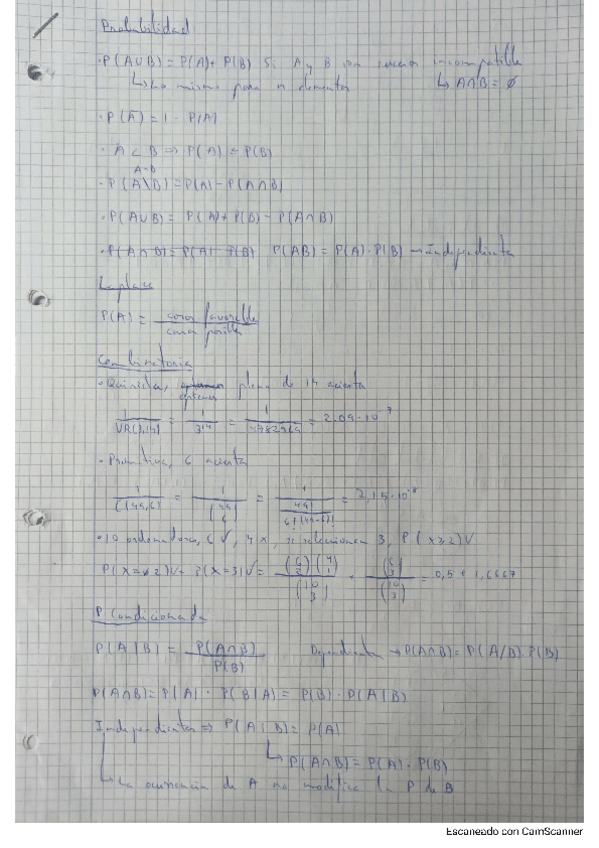 Probabilidad
· P(A∪B) = P(A) + P(B) Si A y B son sucesos incompatible
↳ Lo mismo para n elementos ↳ A∩B = ∅
· P(Ā) = 1 - P(A)
· A ⊂ B ⇒ P(A) ≤ P(B)
A-B
· P(A\B) = P(A) - P(A∩B)
· P(A∪B) = P(A) + P(B) - P(A∩B)
· P(A∩B) = P(A) · P(B) P(AB) = P(A) · P(B) → independiente
Laplace
P(A) = casos favorable / casos posible
Combinatoria
· Quiniela, opciones pleno de 14 acierta
1/VR(3,14) = 1/3^14 = 1/4782969 = 2,09·10^-7
· Primitiva, 6 acierta
1/C(49,6) = 1/(49 6) = 1/(49!/6!(49-6)!) = 7,15·10^-8
· 10 ordenadores, 6 V, 4 x, se seleccionan 3, P(x≥2)V
P(X=2)V + P(X=3)V = (6 2)(4 1)/(10 3) + (6 3)/(10 3) = 0,5 + 1,6667
P Condicionada
P(A|B) = P(A∩B)/P(B) Dependiente → P(A∩B) = P(A/B) · P(B)
P(A∩B) = P(A) · P(B|A) = P(B) · P(A|B)
Independientes ⇒ P(A|B) = P(A)
↳ P(A∩B) = P(A) · P(B)
↳ La ocurrencia de A no modifica la P de B
Escaneado con CamScanner